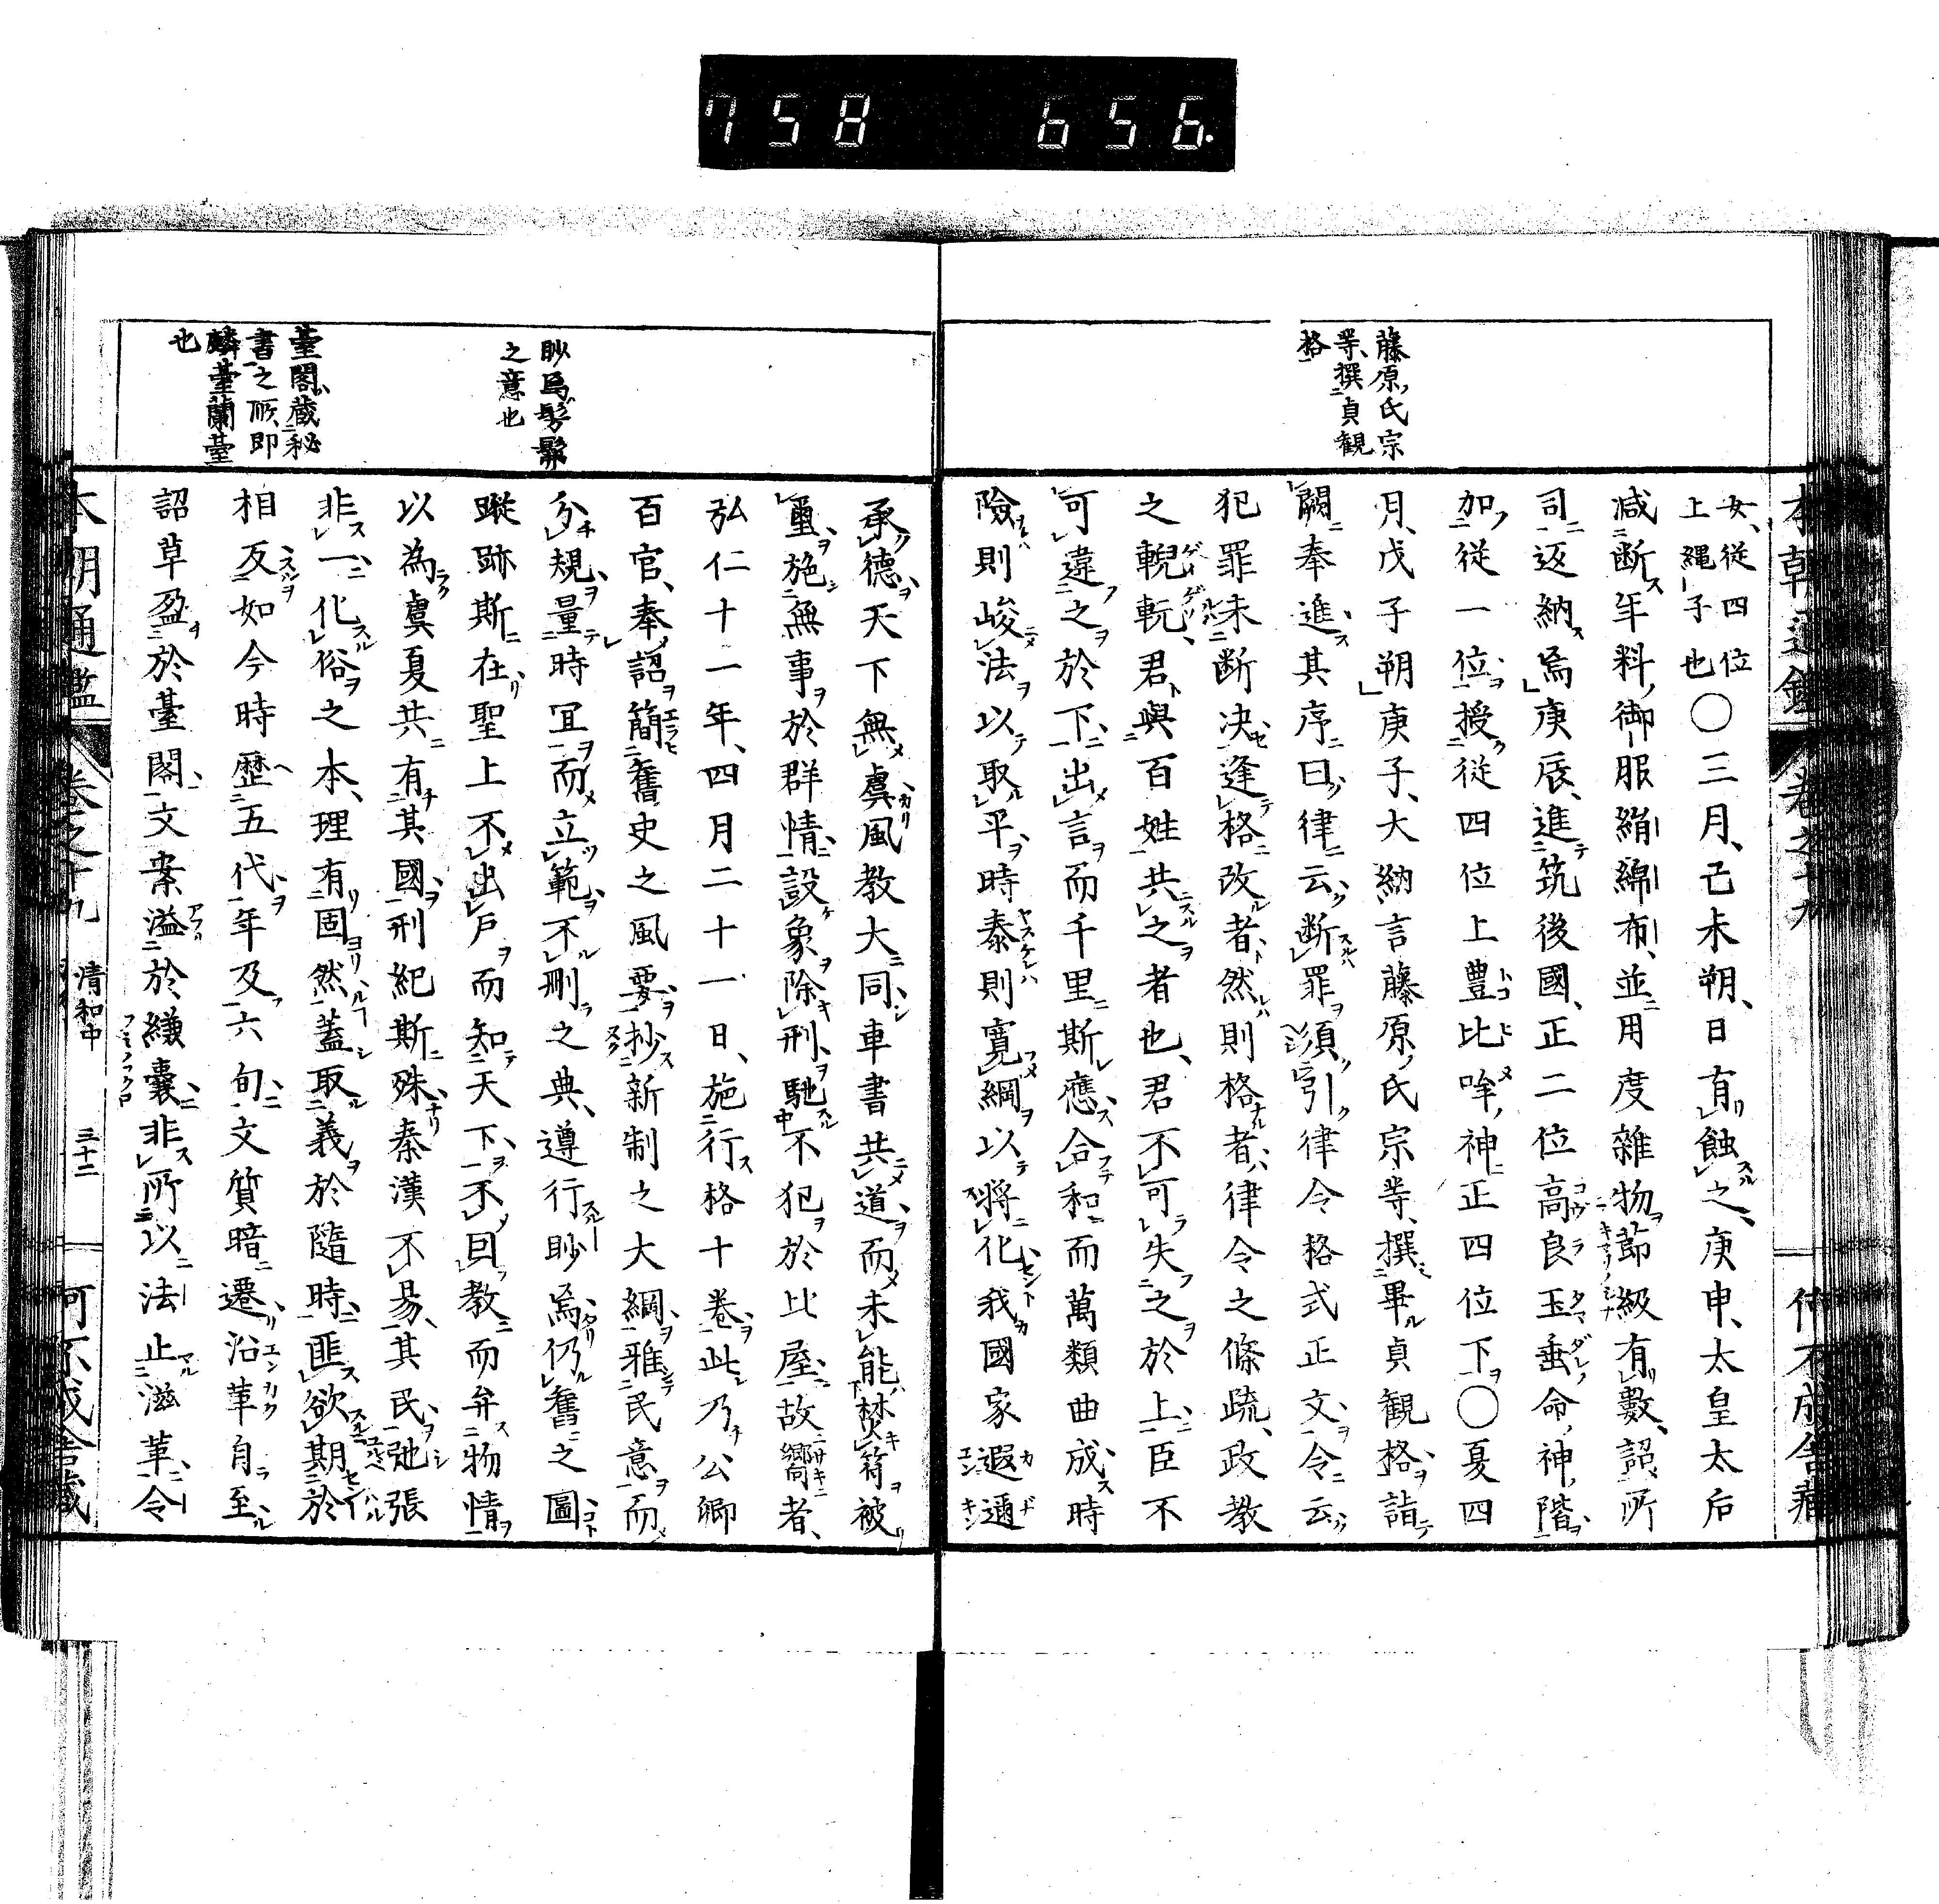 758 656.
藤原氏宗
等撰貞観
格
女、従四位
上縄子也
〇三月、己未朔、日有蝕之、庚申、太皇太后
減断年料御服絹綿布、並用度雑物節級有數、詔所
司返納焉庚辰、進筑後國、正二位高良玉垂命神階
加従一位授従四位上豊比咩神正四位下〇夏四
月、戊子朔庚子、大納言藤原氏宗等、撰畢貞観格詣
闕奉進其序曰律云断罪須引律令格式正文令云
犯罪未断決逢格改者然則格者律令之條疏、政教
之輗軏、君與百姓共之者也、君不可失之於上臣不
可違之於下出言而千里斯應合和而萬類曲成時
險則峻法以取平時泰則寛綱以將化我國家遐邇
承德天下無虞風教大同車書共道而未能焚符被
璽施無事於群情設象除刑馳不犯於比屋故嚮者、
弘仁十一年、四月二十一日、施行格十卷此乃公卿
百官、奉詔簡舊史之風要抄新制之大綱雅民意而
分規量時冝而立範不刪之典、遵行眇焉仍舊之圖
蹤跡斯在聖上不出戸而知天下不回教而弁物情
以為虞夏共有其國刑紀斯殊秦漢不易其民弛張
非一化俗之本、理有固然蓋取義於隨時匪欲期於
相反如今時歴五代年及六旬文質暗遷沿革自至
詔草盈於臺閣文案溢於縑嚢非所以法止滋革令
眇焉髣髴
之意也
臺閣藏秘
書之所即
麟臺蘭臺
也
清和中
三十二